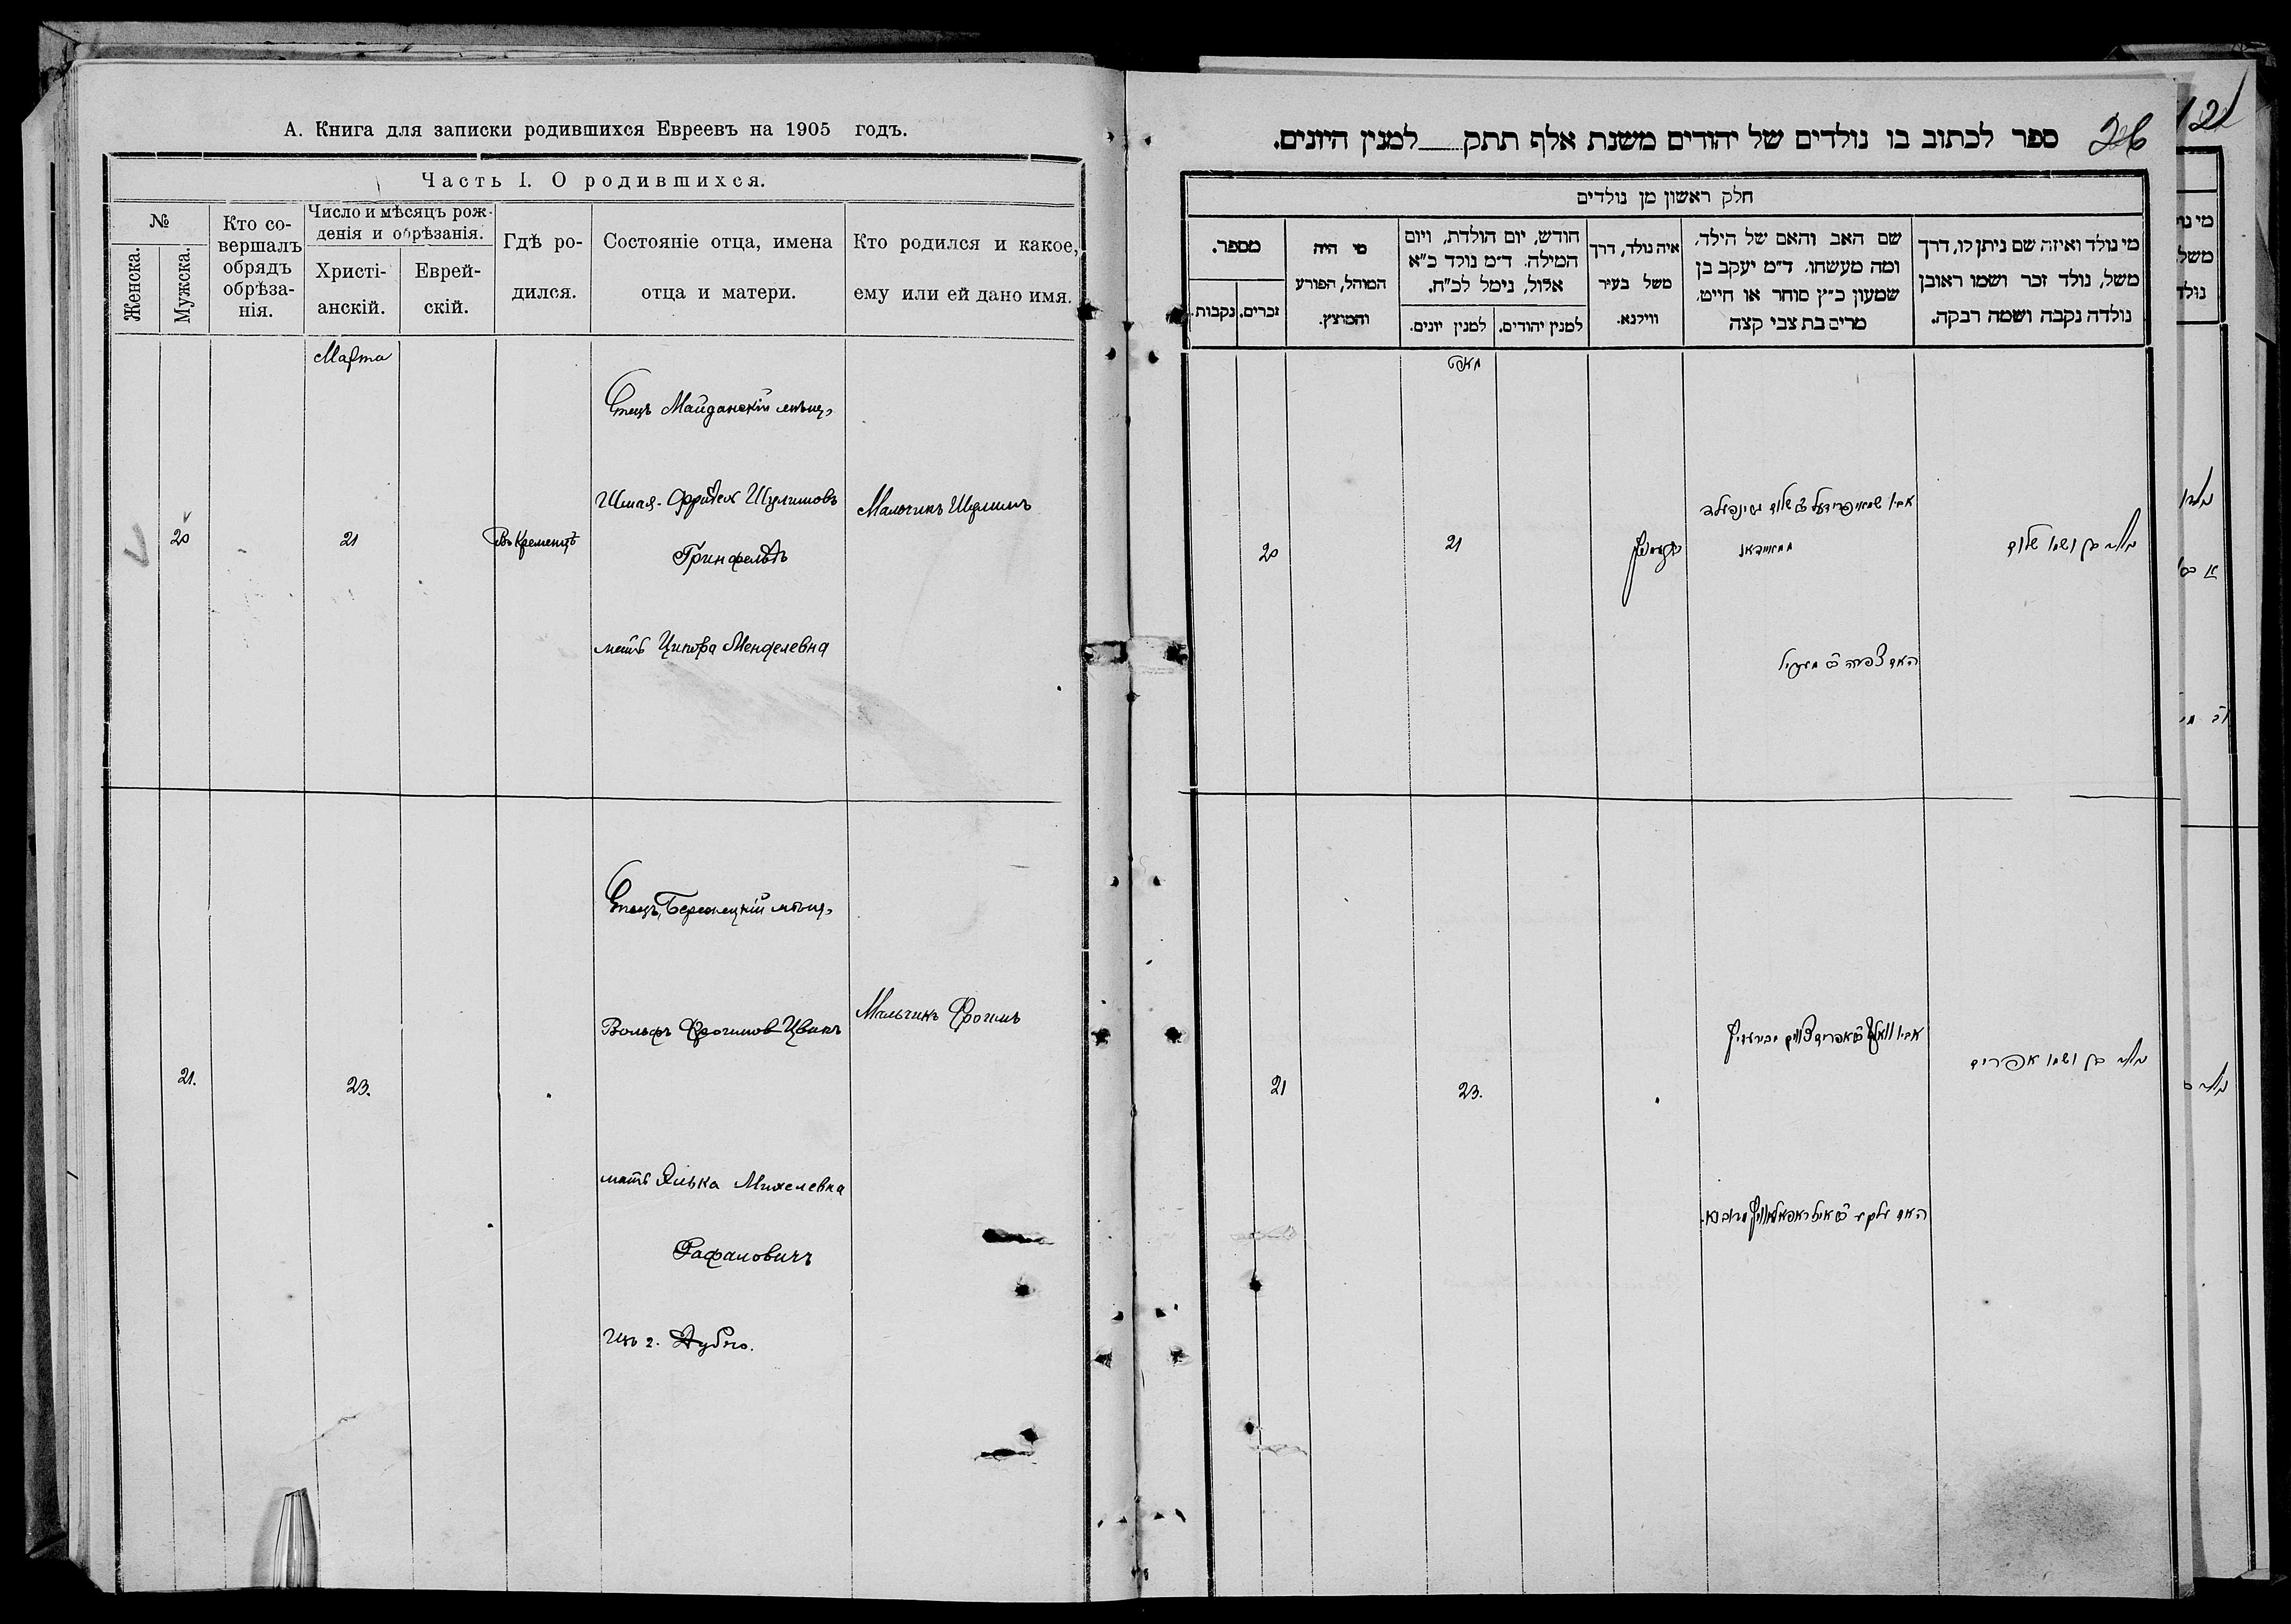 А. Книга для записки родившихся Евреевъ на 1905 годъ.
Часть I. О родившихся.
№
Женска.
Мужска.
Кто со-
вершалъ
обрядъ
обрѣза-
нія.
Число и мѣсяцъ рож-
денія и обрѣзанія.
Христі-
анскій.
Еврей-
скій.
Гдѣ ро-
дился.
Состояніе отца, имена
отца и матери.
Кто родился и какое,
ему или ей дано имя.
Марта
20
21
Въ Кременцѣ
Отецъ Майданскій мѣщ.
Шмая-Фройдел Шулимовъ
Гринфельдъ
мать Ципора Менделевна
Мальчикъ Шулимъ
21.
23.
Отецъ, Бережецкій мѣщ.
Вольфъ Фроимов Цвикъ
мать Элька Михелевна
Рафаловичъ
Изъ г. Дубно.
Мальчикъ Фроимъ
ספר לכתוב בו נולדים של יהודים משנת אלף תתק למנין היונים.
26
חלק ראשון מן נולדים
מספר.
זכרים.
נקבות.
מי היה
המוהל, הפורע
והמוצץ.
חודש, יום הולדת, ויום
המילה. ד״מ נולד כ״א
אלול, נימל לכ״ח.
למנין יונים.
למנין יהודים.
איה נולד, דרך
משל בעיר
ווילנא.
שם האב והאם של הילד,
ומה מעשהו. ד״מ יעקב בן
שמעון כ״ץ סוחר או חייט,
מרים בת צבי קצה
מי נולד ואיזה שם ניתן לו, דרך
משל, נולד זכר ושמו ראובן
נולדה נקבה ושמה רבקה.
מארט
20
21
קרעמניץ
אביו שמאי פרידעל ב״ש שלום גרינפעלד
ממאיידאן
האם צפורה ב״מ מענדיל
נולד בן ושמו שלום
21
23.
נולד בן ושמו אפרים
121